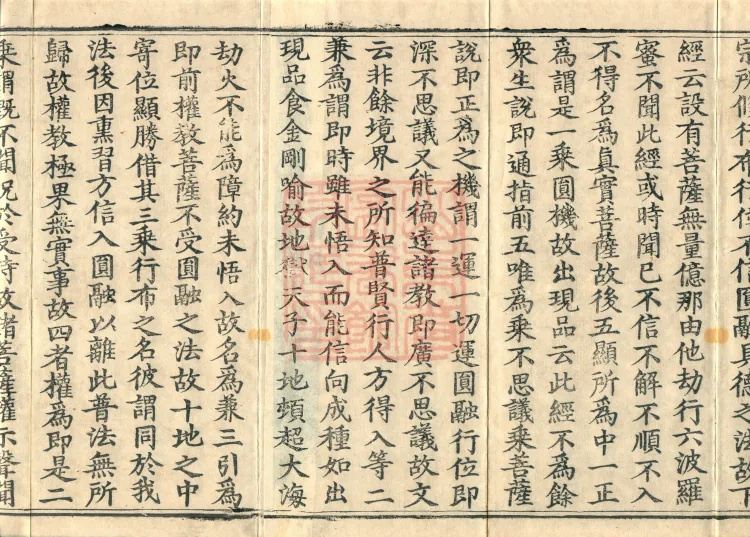 宗所信行布行位不信圓融具德之法故下
經云設有菩薩無量億那由他劫行六波羅
蜜不聞此經或時聞已不信不解不順不入
不得名為真實菩薩故後五顯所為中一正
為謂是一乘圓機故出現品云此經不為餘
衆生說即通指前五唯為乘不思議乘菩薩
說即正為之機謂一運一切運圓融行位即
深不思議又能徧達諸教即廣不思議故文
云非餘境界之所知普賢行人方得入等二
兼為謂即時雖未悟入而能信向成種如出
現品食金剛喻故地獄天子十地頓超大海
劫火不能為障約未悟入故名為兼三引為
即前權教菩薩不受圓融之法故十地之中
寄位顯勝借其三乘行布之名彼謂同於我
法後因熏習方信入圓融以離此普法無所
歸故權教極界無實事故四者權為即是二
乘謂既不聞況於受持故諸菩薩權示聲聞